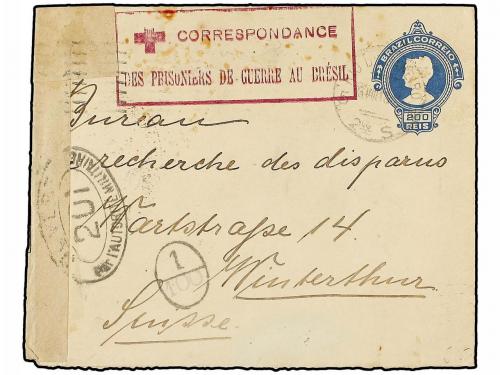 CORRESPONDANCE
DES PRISONIERS DE GUERRE AU BRÉSIL
BRAZIL CORREIO
200
REIS
Bureau
recherche des disparus
Wartstraße 14
Winterthur
Suisse.
201
PAR L'AUTORITÉ MILITAIRE
1
S